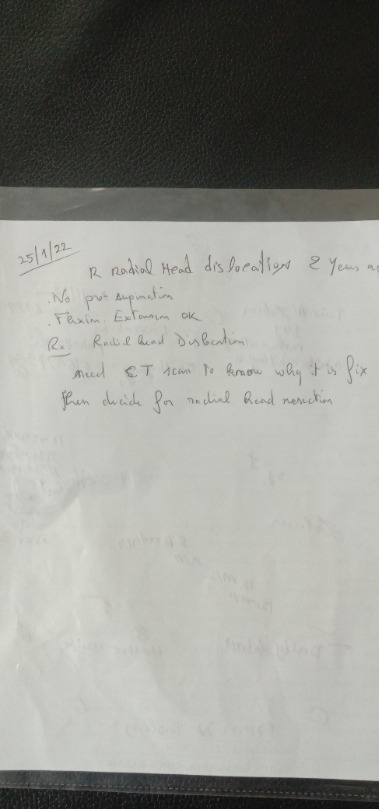 25/1/22
R Radial Head dislocation 2 Years
. No pro supination
. Flexion, Extension OK
Rx Radial head Dislocation
need CT scan to know why it is fix
then decide for radial head resection